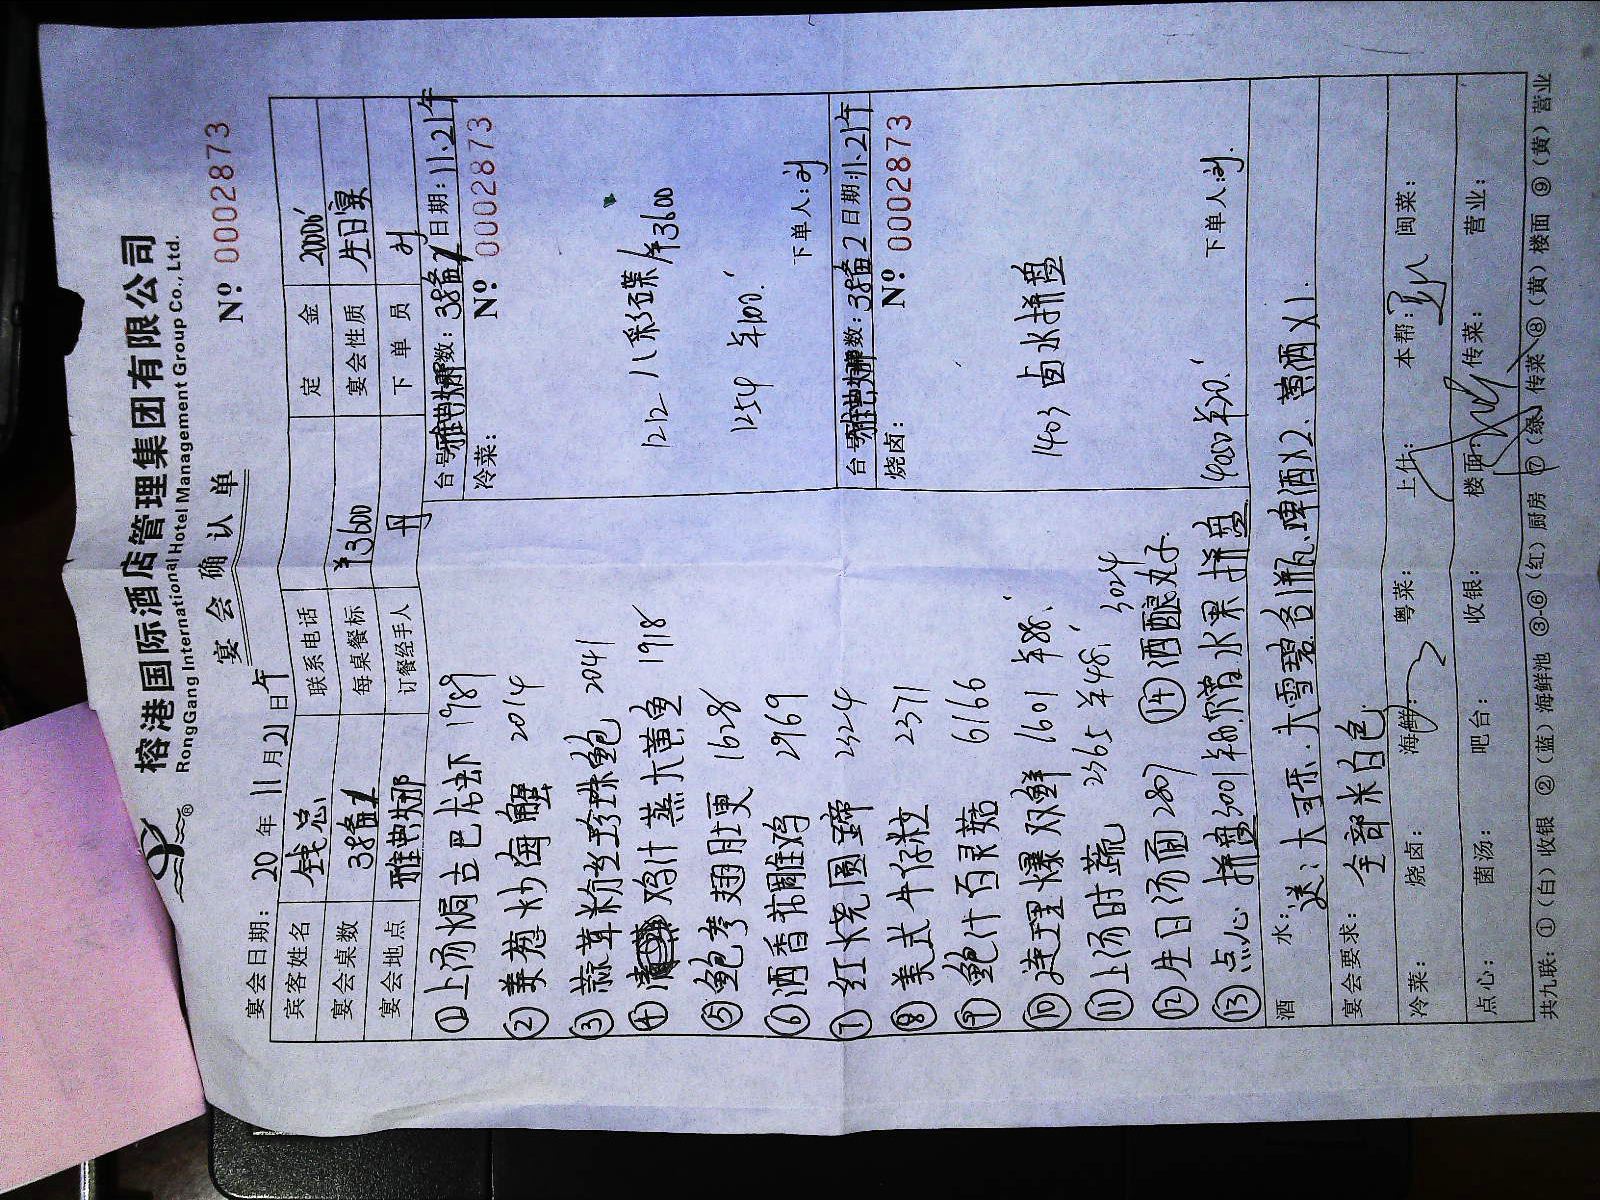 榕港国际酒店管理集团有限公司
RongGang International Hotel Management Group Co., Ltd.
宴会确认单
宴会日期: 20 年 11 月 21 日 午
Nº 0002873
宾客姓名 钱总 联系电话 定金 20000
宴会桌数 38备1 每桌餐标 ¥3600 宴会性质 生日宴
宴会地点 雅典娜 订餐经手人 丹 下单员
①上汤焗古巴龙虾 1989
②姜葱炒海蟹 2014
③蒜茸粉丝珍珠鲍 2041
④鸡汁蒸大黄鱼 1918
⑤鲍参翅肚更 1628
⑥酒香节周雎鸡 2969
⑦红烧圆蹄 2324
⑧美式牛仔粒 2371
⑨鲍汁百灵菇 6166
⑩连理爆双鲜 1601 半88.
⑪上汤时蔬 2365 半48. 3024
⑫生日汤面 2807 ⑭酒酿丸子
⑬点心拼盘 3001 水果拼盘 4020 半20.
台号:雅典娜 数:38备1 日期:11.21午
冷菜: Nº 0002873
1212 八彩碟/半3600
1254 半100.
下单人:
台号:雅典娜 桌数:38备2 日期:11.21午
烧卤: Nº 0002873
1403 卤水拼盘
下单人:
酒水: 送:大可乐.大雪碧各1瓶、啤酒X2、黄酒X1.
宴会要求: 全部米白色
冷菜: 烧卤: 海鲜: 粤菜: 上什: 本帮: 闽菜:
点心: 菌汤: 吧台: 收银: 楼面: 传菜: 营业:
共九联: ①(白)收银 ②(蓝)海鲜池 ③-⑥(红)厨房 ⑦(绿)传菜 ⑧(黄)楼面 ⑨(黄)营业